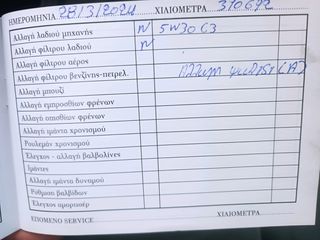 ΗΜΕΡΟΜΗΝΙΑ 28/3/2024 ΧΙΛΙΟΜΕΤΡΑ 310692
Αλλαγή λαδιού μηχανής ν 5W30 C3
Αλλαγή φίλτρου λαδιού ν
Αλλαγή φίλτρου αέρος
Αλλαγή φίλτρου βενζίνης-πετρελ. Αλλαγή (Α)
Αλλαγή μπουζί
Αλλαγή εμπροσθίων φρένων
Αλλαγή οπισθίων φρένων
Αλλαγή ιμάντα χρονισμού
Ρουλεμάν χρονισμού
Έλεγχος - αλλαγή βαλβολίνες
Ιμάντες
Αλλαγή ιμάντα δυναμού
Ρύθμιση βαλβίδων
Έλεγχος αμορτισέρ
ΕΠΟΜΕΝΟ SERVICE ΧΙΛΙΟΜΕΤΡΑ